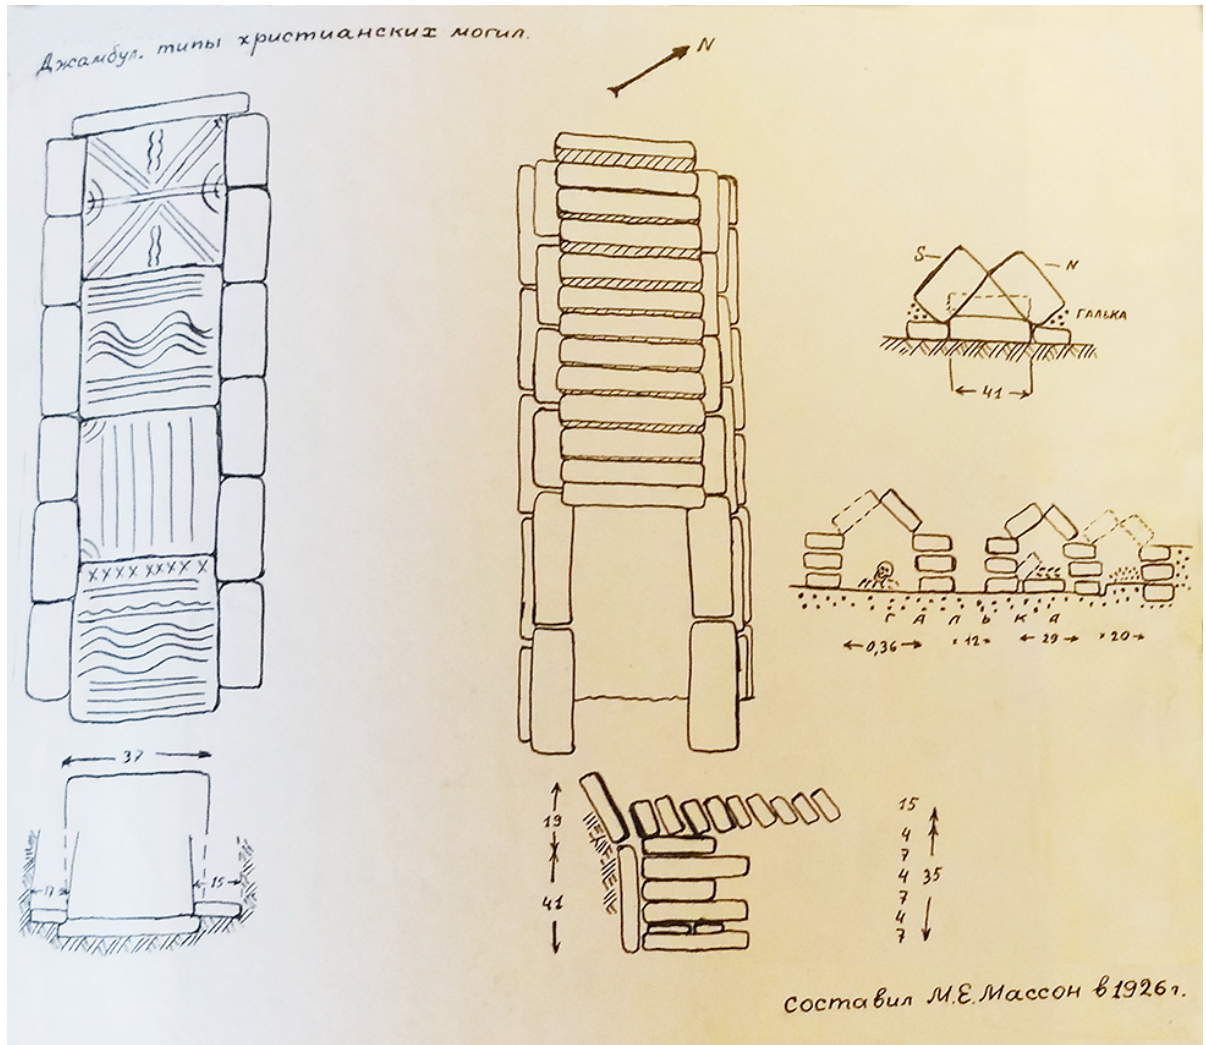 Джамбул. типы христианских могил.
N
S
N
ГАЛЬКА
41
ГАЛЬКА
0,36
12
29
20
37
17
15
19
41
15
4
7
4 35
7
4
7
составил М.Е.Массон в 1926г.